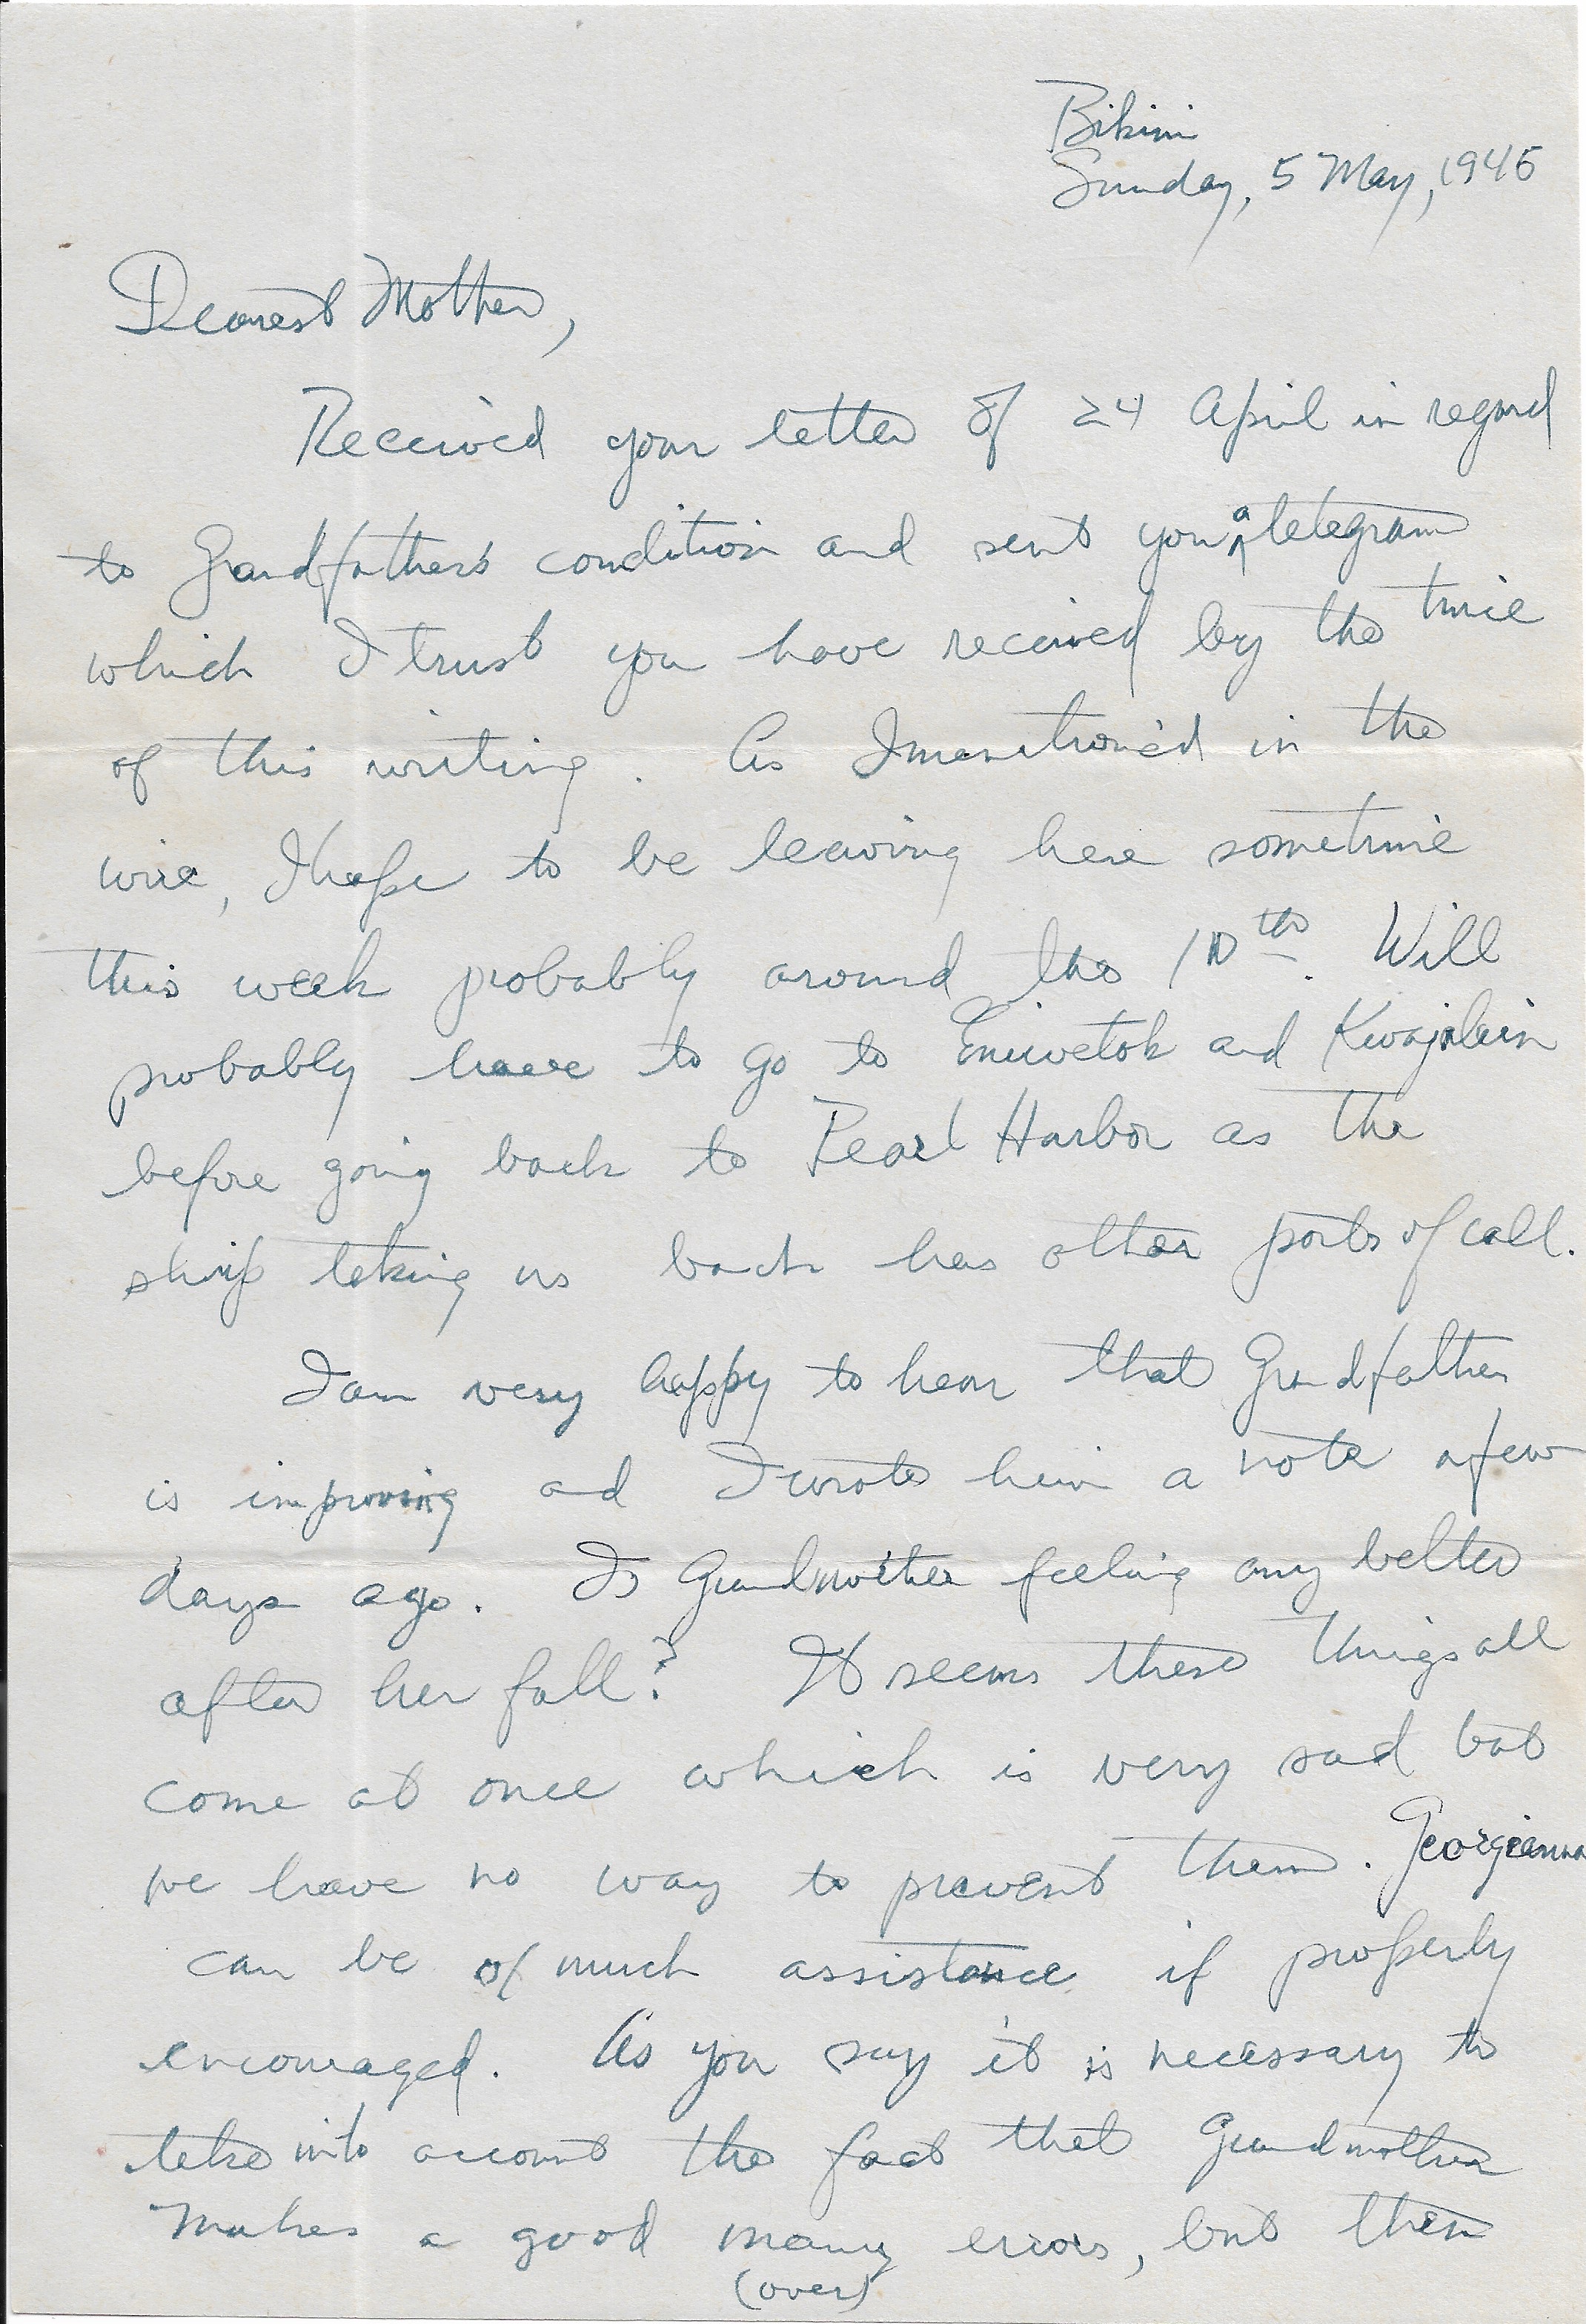 Bikini
Sunday, 5 May, 1946
Dearest Mother,
Received your letter of 24 April in regard
to Grandfather's condition and sent you a telegram
which I trust you have received by the time
of this writing. As I mentioned in the
wire, I hope to be leaving here sometime
this week probably around the 10th. Will
probably have to go to Eniwetok and Kwajalein
before going back to Pearl Harbor as the
ship taking us back has other ports of call.
I am very happy to hear that Grandfather
is improving and I wrote him a note a few
days ago. Is Grandmother feeling any better
after her fall? It seems these things all
come at once which is very sad but
we have no way to prevent them. Georgianna
can be of much assistance if properly
encouraged. As you say it is necessary to
take into account the fact that Grandmother
makes a good many errors, but then
(over)